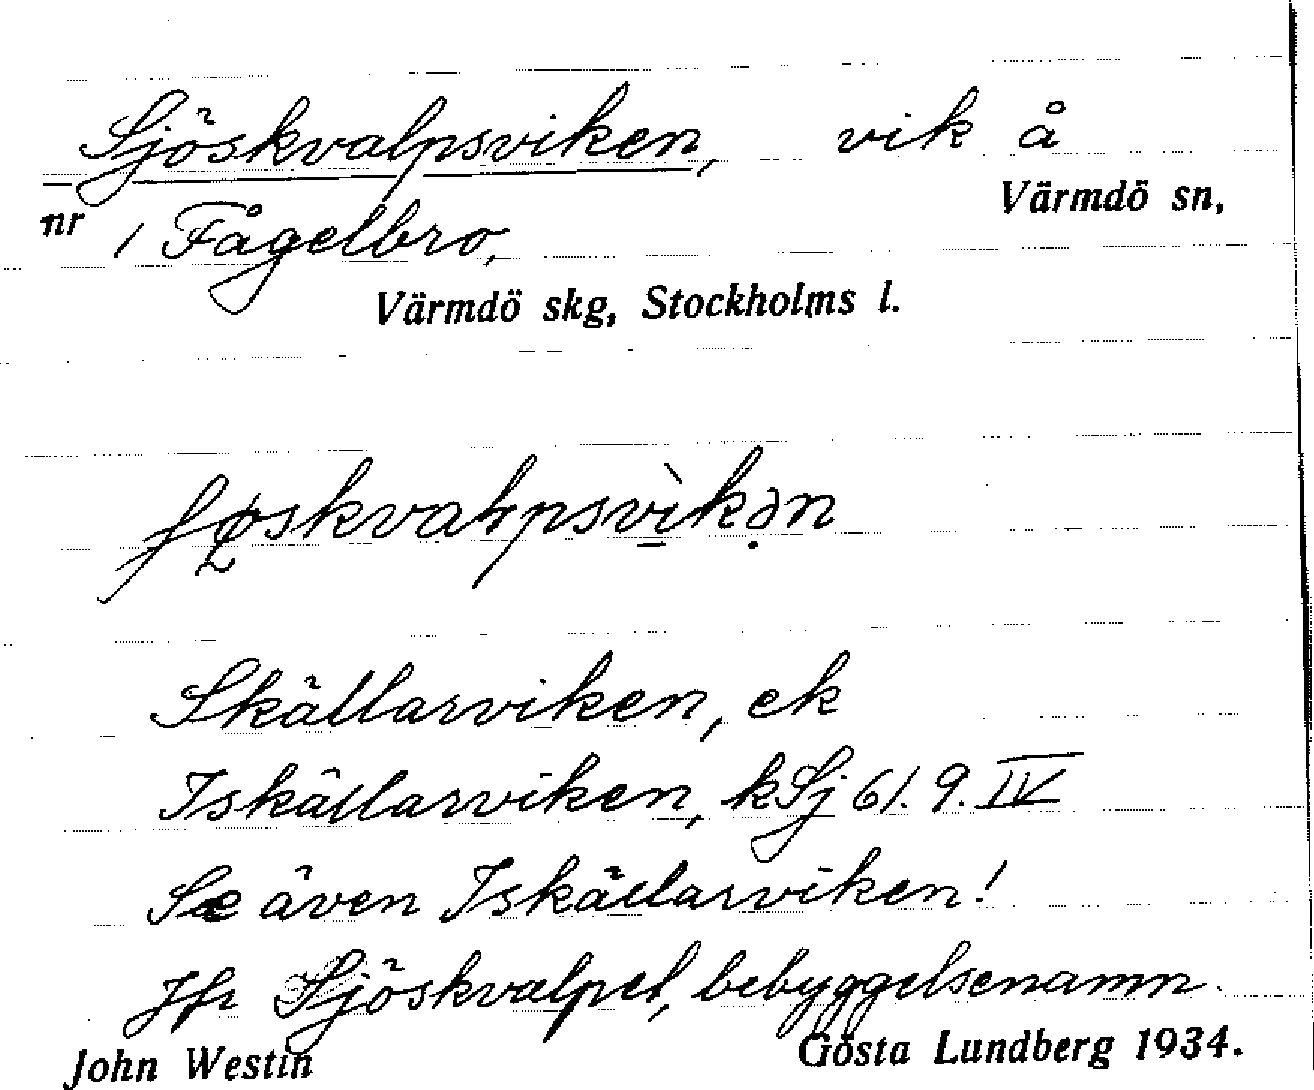 Sjöskvalpsviken, vik å
Värmdö sn,
nr 1 Fågelbro,
Värmdö skg, Stockholms l.
Skällarviken, ek
Iskällarviken, kSj 61. 9. IV
Se även Iskällarviken!
Jfr Sjöskvalpet, bebyggelsenamn
John Westin Gösta Lundberg 1934.